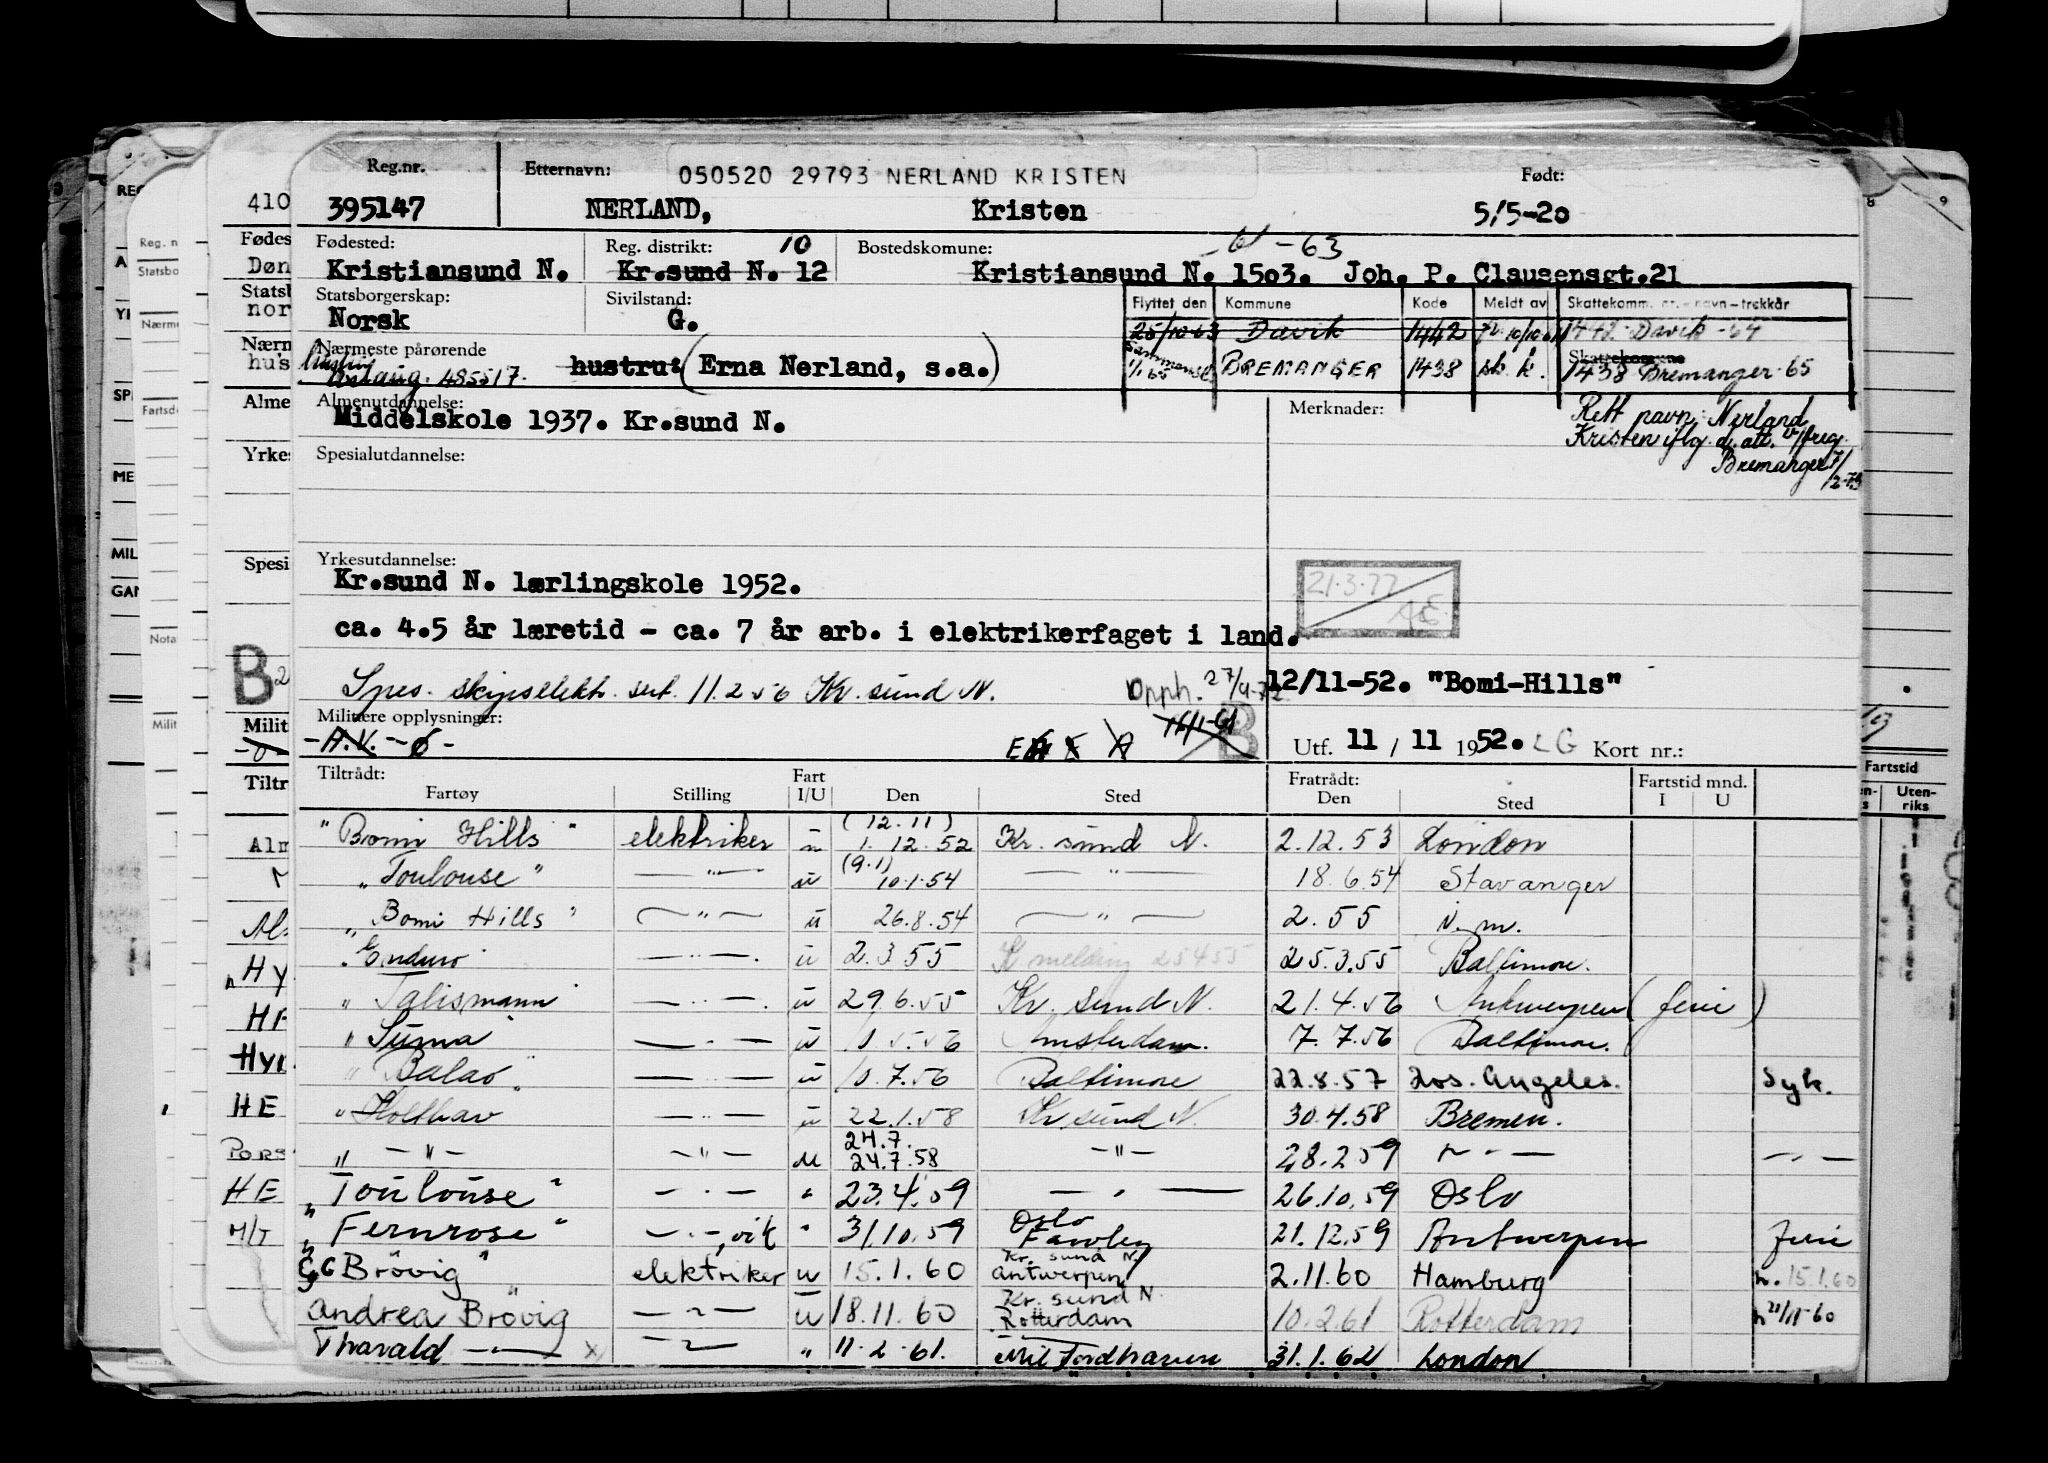 Reg.nr. Etternavn: 050520 29793 NERLAND KRISTEN Født:
395147 NERLAND, Kristen 5/5-20
Fødested: Reg. distrikt: 10 Bostedskomune: -61 -63
Kristiansund N. Kr.sund N. 12 Kristiansund N. 1503. Joh. P. Clausensgt.21
Statsborgerskap: Sivilstand: Flyttet den Kommune Kode Meldt av Skattekomm. nr.-navn-trekkår
Norsk G. 25/10-63 Davik 1442 10/10-61 1442 Davik -64
Nærmeste pårørende Skattekomune
Aslaug. 485517. hustru: (Erna Nerland, s.a.) 1/1 65 BREMANGER 1438 sk. k. 1438 Bremanger-65
Almenutdannelse: Merknader:
Middelskole 1937. Kr.sund N.
Rett navn: Nerland
Kristen iflg. d. att. v/freg.
Bremanger 7/
12-73
Spesialutdannelse:
Yrkesutdannelse:
Kr.sund N. lærlingskole 1952. 21.3.77
ca. 4.5 år læretid - ca. 7 år arb. i elektrikerfaget i land.
Spes. skipselekt. sert. 11.2.56 Kr. sund N. Opph. 27/4-72 12/11-52. "Bomi-Hills"
Militære opplysninger:
-A.V. - 6 - 16/1-61 B Utf. 11 / 11 1952. LG Kort nr.:
Tiltrådt: Fart Fratrådt: Fartstid mnd.
Fartøy Stilling I/U Den Sted Den Sted I U
"Bomi Hills" elektriker u (12.11) 1.12.52 Kr. sund N. 2.12.53 London
"Toulouse" — " — u (9.1) 10.1.54 — " — 18.6.54 Stavanger
"Bomi Hills" — " — u 26.8.54 — " — 2.55 N.m.
"Enduro — " — u 2.3.55 K melding 25455 25.3.55 Baltimore.
"Talismann" — " — u 29.6.55 Kr. sund N. 21.4.56 Antwerpen (ferie)
"Suma" — " — u 1.5.56 Amsterdam. 7.7.56 Baltimore.
"Balao" — " — u 10.7.56 Baltimore 22.8.57 Los. Angeles. Syk.
"Holthav — " — u 22.1.58 Kr sund N. 30.4.58 Bremen.
" — " — — " — u 24.7. 24.7.58 — " — 28.2.59 — " — — " —
"Toulouse" — " — " 23.4.59 — " — 26.10.59 Oslo
"Fernrose" — " —, vik " 31.10.59 Oslo Fawley 21.12.59 Antwerpen Ferie
G.C Brövig" elektriker u 15.1.60 Kr. sund N. Antwerpen 2.11.60 Hamburg n. 15.1.60
Andrea Brövig — " — u 18.11.60 Kr. sund N. Rotterdam 10.2.61 Rotterdam 21/11-60
Thorvald — " — x — " — " 11.2.61. 31.1.62 London